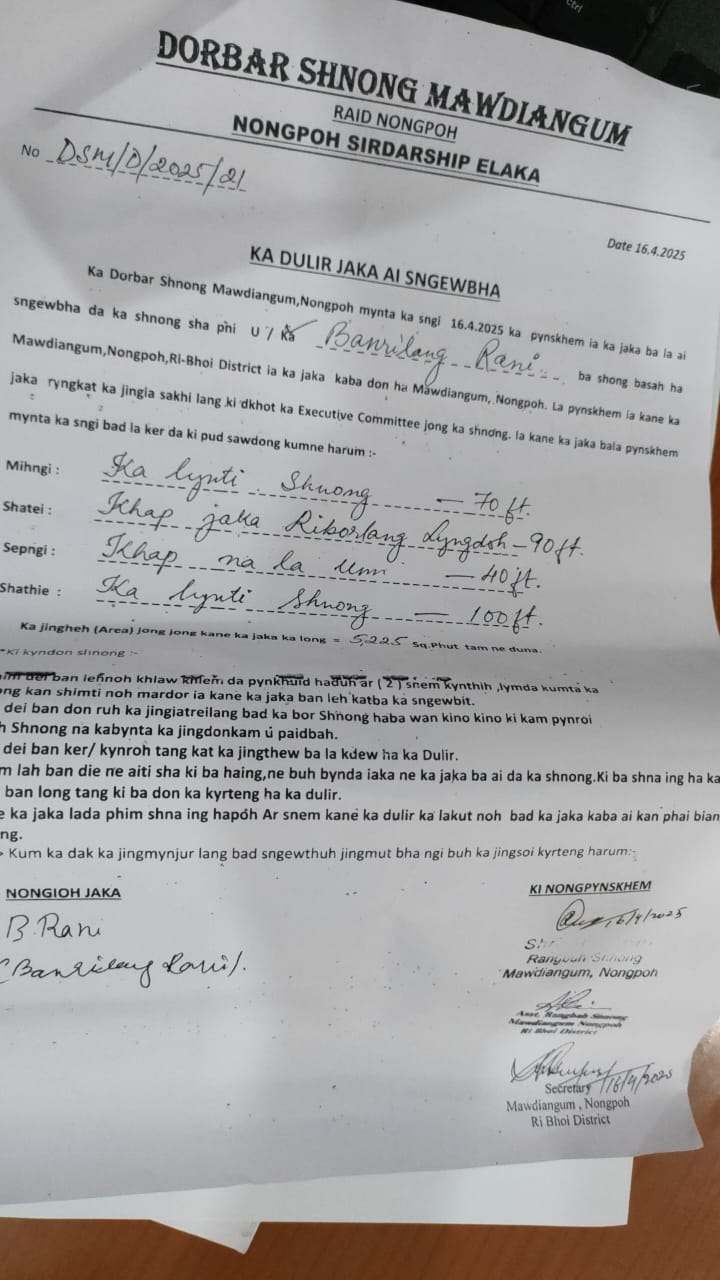 DORBAR SHNONG MAWDIANGUM
RAID NONGPOH
NONGPOH SIRDARSHIP ELAKA
No DSM/D/2025/21
Date 16.4.2025
KA DULIR JAKA AI SNGEWBHA
Ka Dorbar Shnong Mawdiangum,Nongpoh mynta ka sngi 16.4.2025 ka pynskhem ia ka jaka ba la ai
sngewbha da ka shnong sha phi U / Ka Banrilang Rani ba shong basah ha
Mawdiangum,Nongpoh,Ri-Bhoi District ia ka jaka kaba don ha Mawdiangum, Nongpoh. La pynskhem ia kane ka
jaka ryngkat ka jingia sakhi lang ki dkhot ka Executive Committee jong ka shnong. Ia kane ka jaka bala pynskhem
mynta ka sngi bad la ker da ki pud sawdong kumne harum :-
Mihngi : Ka lynti Shnong — 70 ft.
Shatei : Khap jaka Riborlang Lyngdoh – 90 ft.
Sepngi : Khap na la um — 40 ft.
Shathie : Ka lynti Shnong — 100 ft.
Ka jingheh (Area) jong jong kane ka jaka ka long = 5,225 Sq.Phut tam ne duna.
*Ki kyndon shnong :-
dei ban iehnoh khlaw khlem da pynkhuid haduh ar ( 2 ) snem kynthih ,lymda kumta ka
ng kan shimti noh mardor ia kane ka jaka ban leh katba ka sngewbit.
dei ban don ruh ka jingiatreilang bad ka bor Shnong haba wan kino kino ki kam pynroi
h Shnong na kabynta ka jingdonkam u paidbah.
dei ban ker/ kynroh tang kat ka jingthew ba la kdew ha ka Dulir.
m lah ban die ne aiti sha ki ba haing,ne buh bynda iaka ne ka jaka ba ai da ka shnong.Ki ba shna ing ha ka
ban long tang ki ba don ka kyrteng ha ka dulir.
e ka jaka lada phim shna ing hapoh Ar snem kane ka dulir ka lakut noh bad ka jaka kaba ai kan phai bian
ng.
Kum ka dak ka jingmynjur lang bad sngewthuh jingmut bha ngi buh ka jingsoi kyrteng harum:-
NONGIOH JAKA
KI NONGPYNSKHEM
B. Rani
(Banrilang Rani).
16/4/2025
Rangbah Shnong
Mawdiangum, Nongpoh
Asst. Rangbah Shnong
Mawdiangum Nongpoh
Ri Bhoi District
16/4/2025
Secretary
Mawdiangum , Nongpoh
Ri Bhoi District